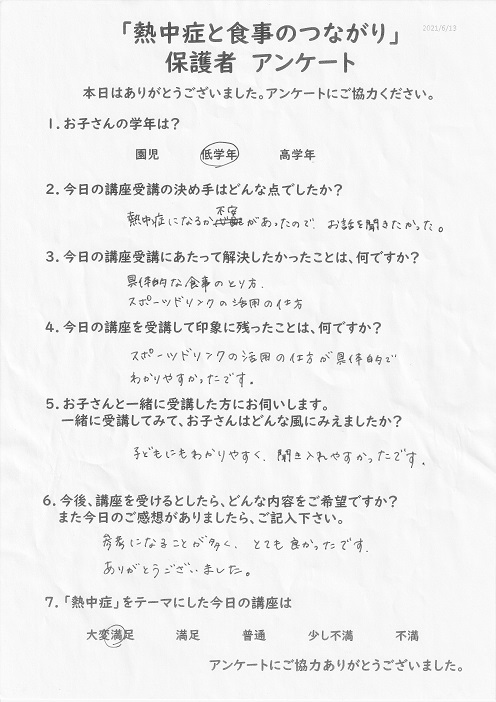 2021/6/13
「熱中症と食事のつながり」
保護者 アンケート
本日はありがとうございました。アンケートにご協力ください。
1.お子さんの学年は?
園児 低学年 高学年
2.今日の講座受講の決め手はどんな点でしたか?
熱中症になるか不安があったので、お話を聞きたかった。
3.今日の講座受講にあたって解決したかったことは、何ですか?
具体的な食事のとり方、
スポーツドリンクの活用の仕方
4.今日の講座を受講して印象に残ったことは、何ですか?
スポーツドリンクの活用の仕方が具体的で
わかりやすかったです。
5.お子さんと一緒に受講した方にお伺いします。
一緒に受講してみて、お子さんはどんな風にみえましたか?
子どもにもわかりやすく、聞き入れやすかったです。
6.今後、講座を受けるとしたら、どんな内容をご希望ですか?
また今日のご感想がありましたら、ご記入下さい。
参考になることが多く、とても良かったです。
ありがとうございました。
7.「熱中症」をテーマにした今日の講座は
大変満足 満足 普通 少し不満 不満
アンケートにご協力ありがとうございました。